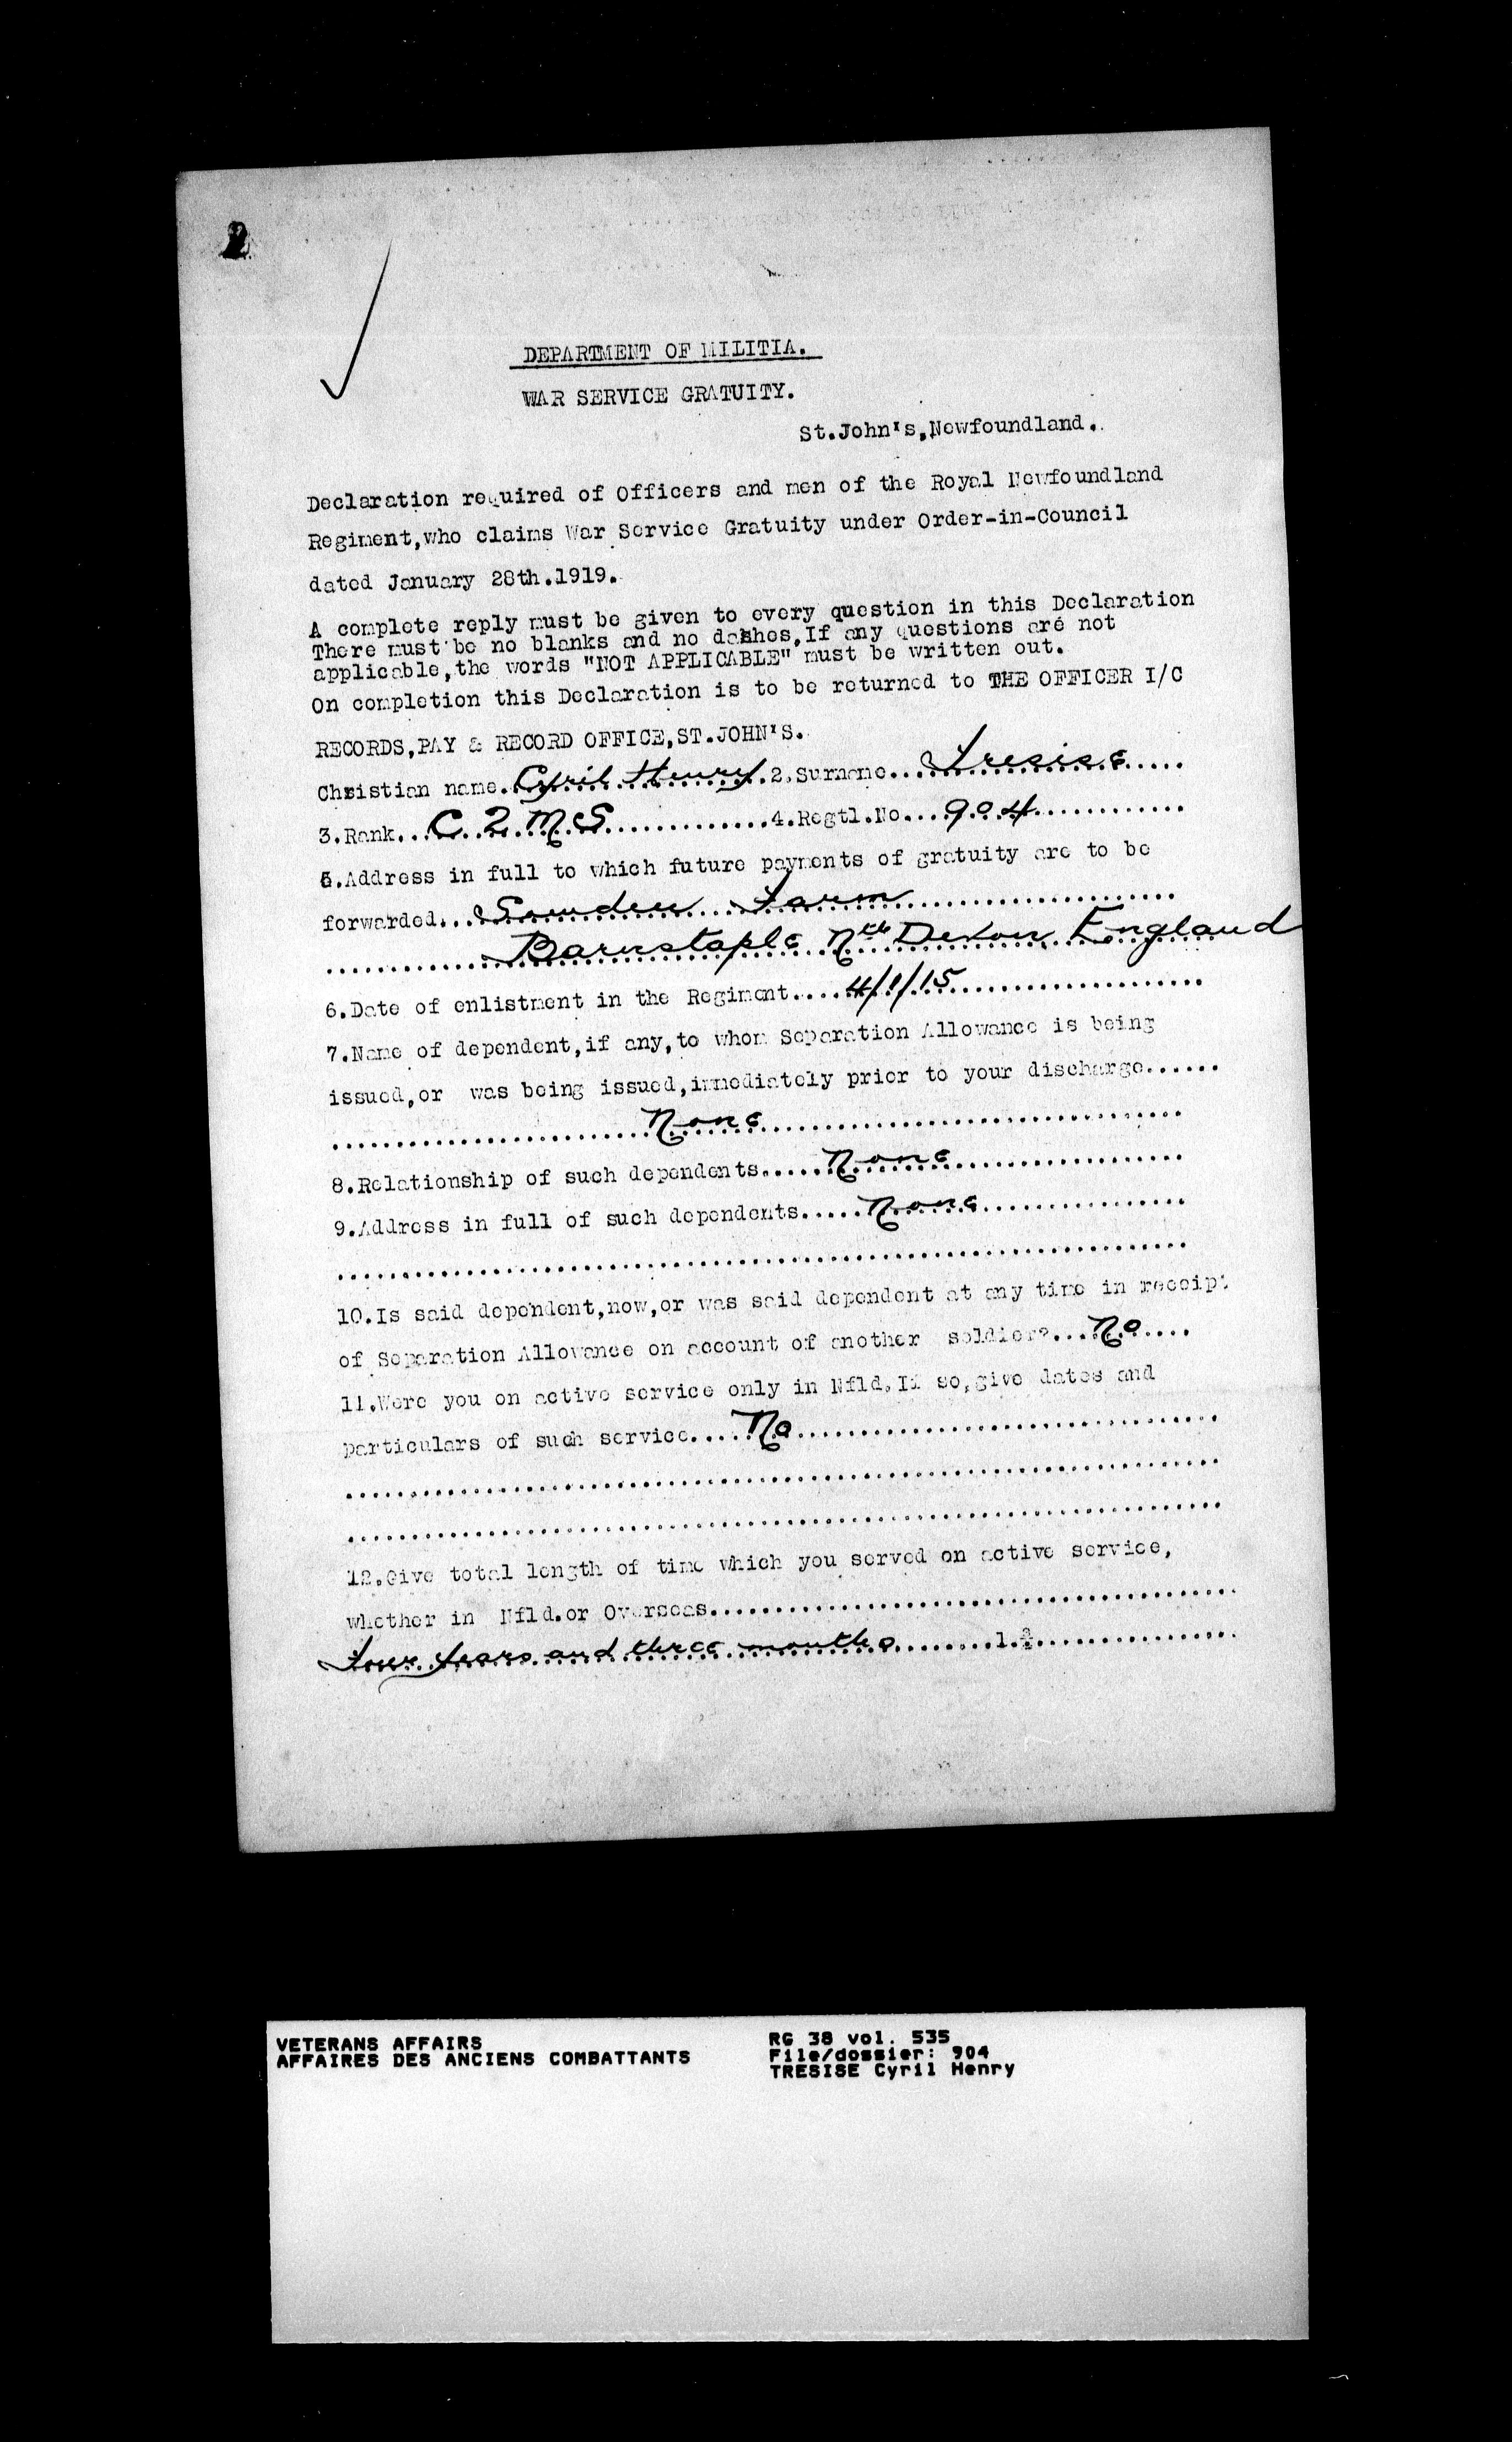 2
DEPARTMENT OF MILITIA.
WAR SERVICE GRATUITY.
St.John's,Newfoundland.
Declaration required of Officers and men of the Royal Newfoundland
Regiment,who claims War Service Gratuity under Order-in-Council
dated January 28th.1919.
A complete reply must be given to every question in this Declaration
There must be no blanks and no dashes.If any questions are not
applicable,the words "NOT APPLICABLE" must be written out.
On completion this Declaration is to be returned to THE OFFICER I/C
RECORDS,PAY & RECORD OFFICE,ST.JOHN'S.
Christian name. Cyril Henry 2.Surname... Tresise
3.Rank... C Q M S 4.Regtl.No... 904
5.Address in full to which future payments of gratuity are to be
forwarded... Sowden Farm
Barnstaple Nth Devon England
6.Date of enlistment in the Regiment.... 4/1/15
7.Name of dependent,if any,to whom Separation Allowance is being
issued,or was being issued,immediately prior to your discharge......
None
8.Relationship of such dependents..... None
9.Address in full of such dependents..... None
10.Is said dependent,now,or was said dependent at any time in receipt
of Separation Allowance on account of another soldier?... No
11.Were you on active service only in Nfld.If so,give dates and
particulars of such service.... No
12.Give total length of time which you served on active service,
whether in Nfld.or Overseas.
Four years and three months
VETERANS AFFAIRS RG 38 vol. 535
AFFAIRES DES ANCIENS COMBATTANTS File/dossier: 904
TRESISE Cyril Henry